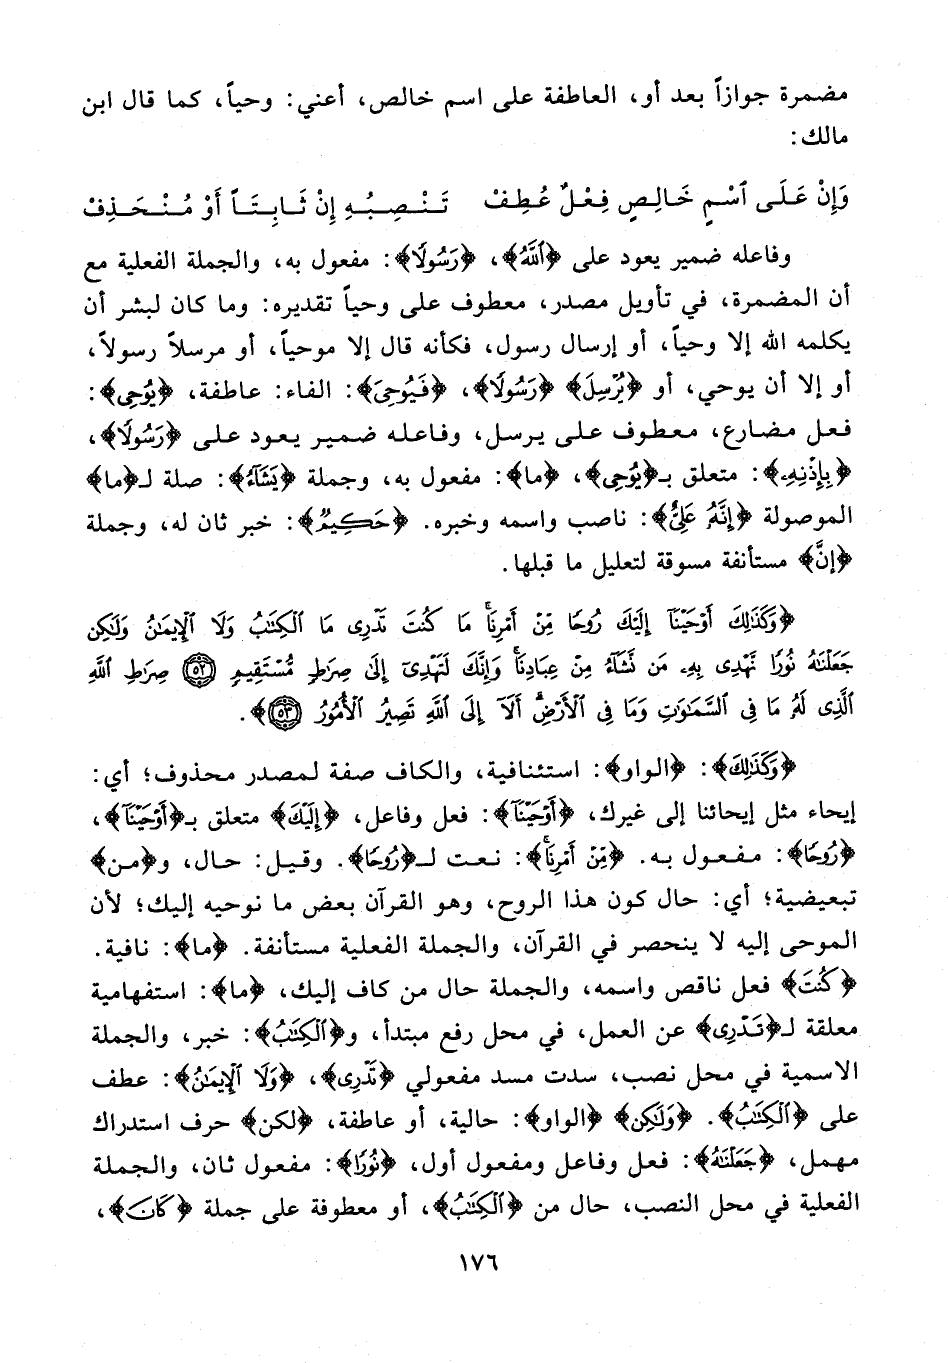 مضمرة جوازاً بعد أو، العاطفة على اسم خالص، أعني: وحياً، كما قال ابن
مالك:
وَإِنْ عَلَى ٱسْمٍ خَالِصٍ فِعْلٌ عُطِفْ تَنْصِبُهِ إِنْ ثَابِتَاً أَوْ مُنْحَذِفْ
وفاعله ضمير يعود على ﴿ٱللَّهُ﴾، ﴿رَسُولًا﴾: مفعول به، والجملة الفعلية مع
أن المضمرة، في تأويل مصدر، معطوف على وحياً تقديره: وما كان لبشر أن
يكلمه الله إلا وحياً، أو إرسال رسول، فكأنه قال إلا موحياً، أو مرسلاً رسولاً،
أو إلا أن يوحي، أو ﴿يُرْسِلَ﴾ ﴿رَسُولًا﴾، ﴿فَيُوحِىَ﴾: الفاء: عاطفة، ﴿يُوحِى﴾:
فعل مضارع، معطوف على يرسل، وفاعله ضمير يعود على ﴿رَسُولًا﴾،
﴿بِإِذْنِهِۦ﴾: متعلق بـ﴿يُوحِى﴾، ﴿ما﴾: مفعول به، وجملة ﴿يَشَآءُ﴾: صلة لـ﴿ما﴾
الموصولة ﴿إِنَّهُۥ عَلِىٌّ﴾: ناصب واسمه وخبره. ﴿حَكِيمٌ﴾: خبر ثان له، وجملة
﴿إنَّ﴾ مستأنفة مسوقة لتعليل ما قبلها.
﴿وَكَذَٰلِكَ أَوْحَيْنَآ إِلَيْكَ رُوحًا مِّنْ أَمْرِنَاۚ مَا كُنتَ تَدْرِى مَا ٱلْكِتَٰبُ وَلَا ٱلْإِيمَٰنُ وَلَٰكِن
جَعَلْنَٰهُ نُورًا نَّهْدِى بِهِۦ مَن نَّشَآءُ مِنْ عِبَادِنَاۚ وَإِنَّكَ لَتَهْدِىٓ إِلَىٰ صِرَٰطٍ مُّسْتَقِيمٍ ٥٢ صِرَٰطِ ٱللَّهِ
ٱلَّذِى لَهُۥ مَا فِى ٱلسَّمَٰوَٰتِ وَمَا فِى ٱلْأَرْضِۗ أَلَآ إِلَى ٱللَّهِ تَصِيرُ ٱلْأُمُورُ ٥٣﴾.
﴿وَكَذَٰلِكَ﴾: ﴿الواو﴾: استئنافية، والكاف صفة لمصدر محذوف؛ أي:
إيحاء مثل إيحائنا إلى غيرك، ﴿أَوْحَيْنَآ﴾: فعل وفاعل، ﴿إِلَيْكَ﴾ متعلق بـ﴿أَوْحَيْنَآ﴾،
﴿رُوحًا﴾: مفعول به. ﴿مِّنْ أَمْرِنَاۚ﴾: نعت لـ﴿رُوحًا﴾. وقيل: حال، و﴿من﴾
تبعيضية؛ أي: حال كون هذا الروح، وهو القرآن بعض ما نوحيه إليك؛ لأن
الموحى إليه لا ينحصر في القرآن، والجملة الفعلية مستأنفة. ﴿ما﴾: نافية.
﴿كُنتَ﴾ فعل ناقص واسمه، والجملة حال من كاف إليك، ﴿ما﴾: استفهامية
معلقة لـ﴿تَدْرِى﴾ عن العمل، في محل رفع مبتدأ، و﴿ٱلْكِتَٰبُ﴾: خبر، والجملة
الاسمية في محل نصب، سدت مسد مفعولي ﴿تَدْرِى﴾، ﴿وَلَا ٱلْإِيمَٰنُ﴾: عطف
على ﴿ٱلْكِتَٰبُ﴾. ﴿وَلَٰكِن﴾ ﴿الواو﴾: حالية، أو عاطفة، ﴿لكن﴾ حرف استدراك
مهمل، ﴿جَعَلْنَٰهُ﴾: فعل وفاعل ومفعول أول، ﴿نُورًا﴾: مفعول ثان، والجملة
الفعلية في محل النصب، حال من ﴿ٱلْكِتَٰبُ﴾، أو معطوفة على جملة ﴿كَانَ﴾،
١٧٦